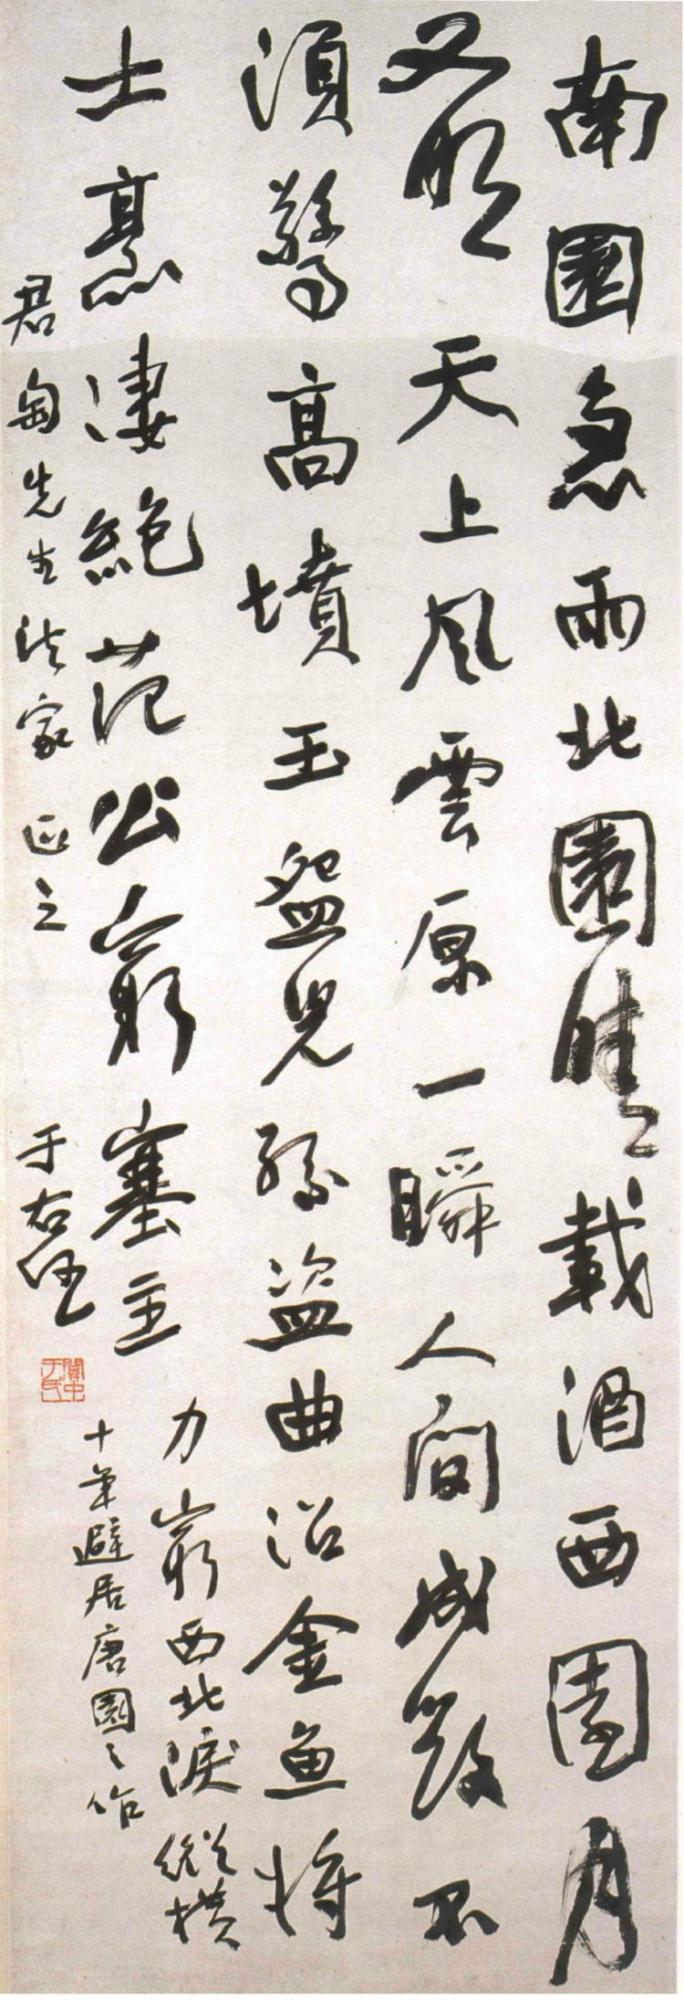 南園急雨北園晴載酒西園月
又明天上風雲原一瞬人間成敗不
須驚高墳玉盌兒孫盜曲沼金魚將
士烹淒絕范公窮塞主
力窮西北淚縱橫
十年避居唐園之作
君匋先生法家正之
于右任
關中于氏